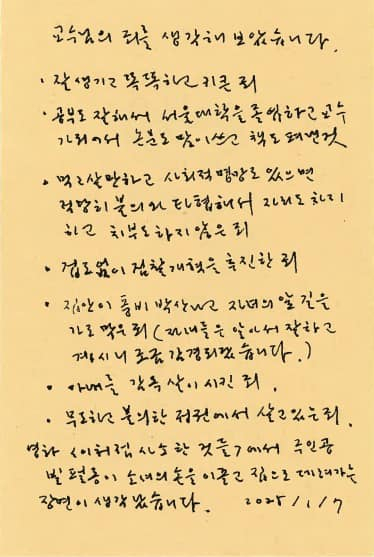 교수님의 죄를 생각해 보았습니다.
· 잘생기고 똑똑하고 키큰 죄
· 공부도 잘해서 서울대학을 졸업하고 교수
가 되어서 논문도 많이 쓰고 책도 펴낸것
· 먹고살만하고 사회적 명망도 있으면
적당히 불의와 타협해서 자리도 차지
하고 치부도 하지 않은 죄
· 겁도 없이 검찰개혁을 추진한 죄
· 집안이 풍비박산나고 자녀의 앞길을
가로막은 죄 (자녀들은 알아서 잘하고
계시니 조금 감경되겠습니다.)
· 아내를 감옥살이 시킨 죄.
· 무도하고 불의한 정권에서 살고있는 죄.
영화 <이처럼 사소한 것들>에서 주인공
빌 펄롱이 소녀의 손을 이끌고 집으로 데려가는
장면이 생각났습니다. 2025/1/7